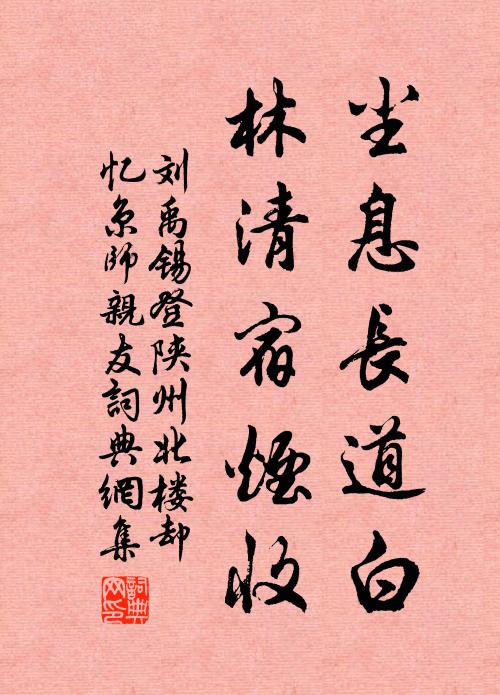 尘息長道白
林清宿煙收
刘禹锡登陕州北楼却
忆京师親友詞典網集
詞典网印